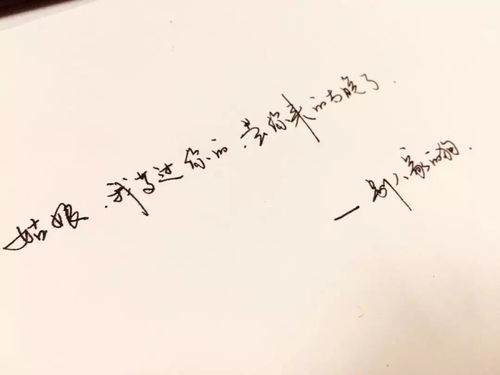 姑娘.我等过你的.是你来的太晚了.
—别人家的狗.